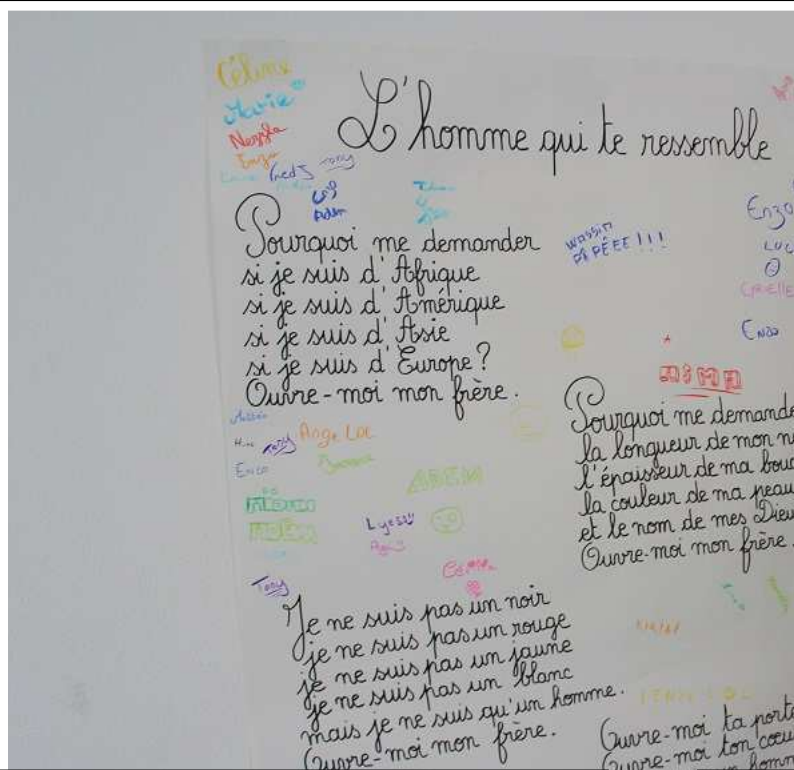 Céline
Marie
Neyssa
Enzo
L'homme qui te ressemble
Tony
Adem
Pourquoi me demander
si je suis d'Afrique
si je suis d'Amérique
si je suis d'Asie
si je suis d'Europe ?
Ouvre-moi mon frère.
WASSIM
PÉPÉEE !!!
Enzo
LUC
CYRIELLE
ENZO
Tony
Ange Loc
ENZO
ADEM
Lyes
Tony
Pourquoi me demande
la longueur de mon n
l'épaisseur de ma bouc
la couleur de ma peau
et le nom de mes Dieu
Ouvre-moi mon frère.
Je ne suis pas un noir
je ne suis pas un rouge
je ne suis pas un jaune
je ne suis pas un blanc
mais je ne suis qu'un homme.
Ouvre-moi mon frère.
Ouvre-moi ta porte
Ouvre-moi ton coeu
homm